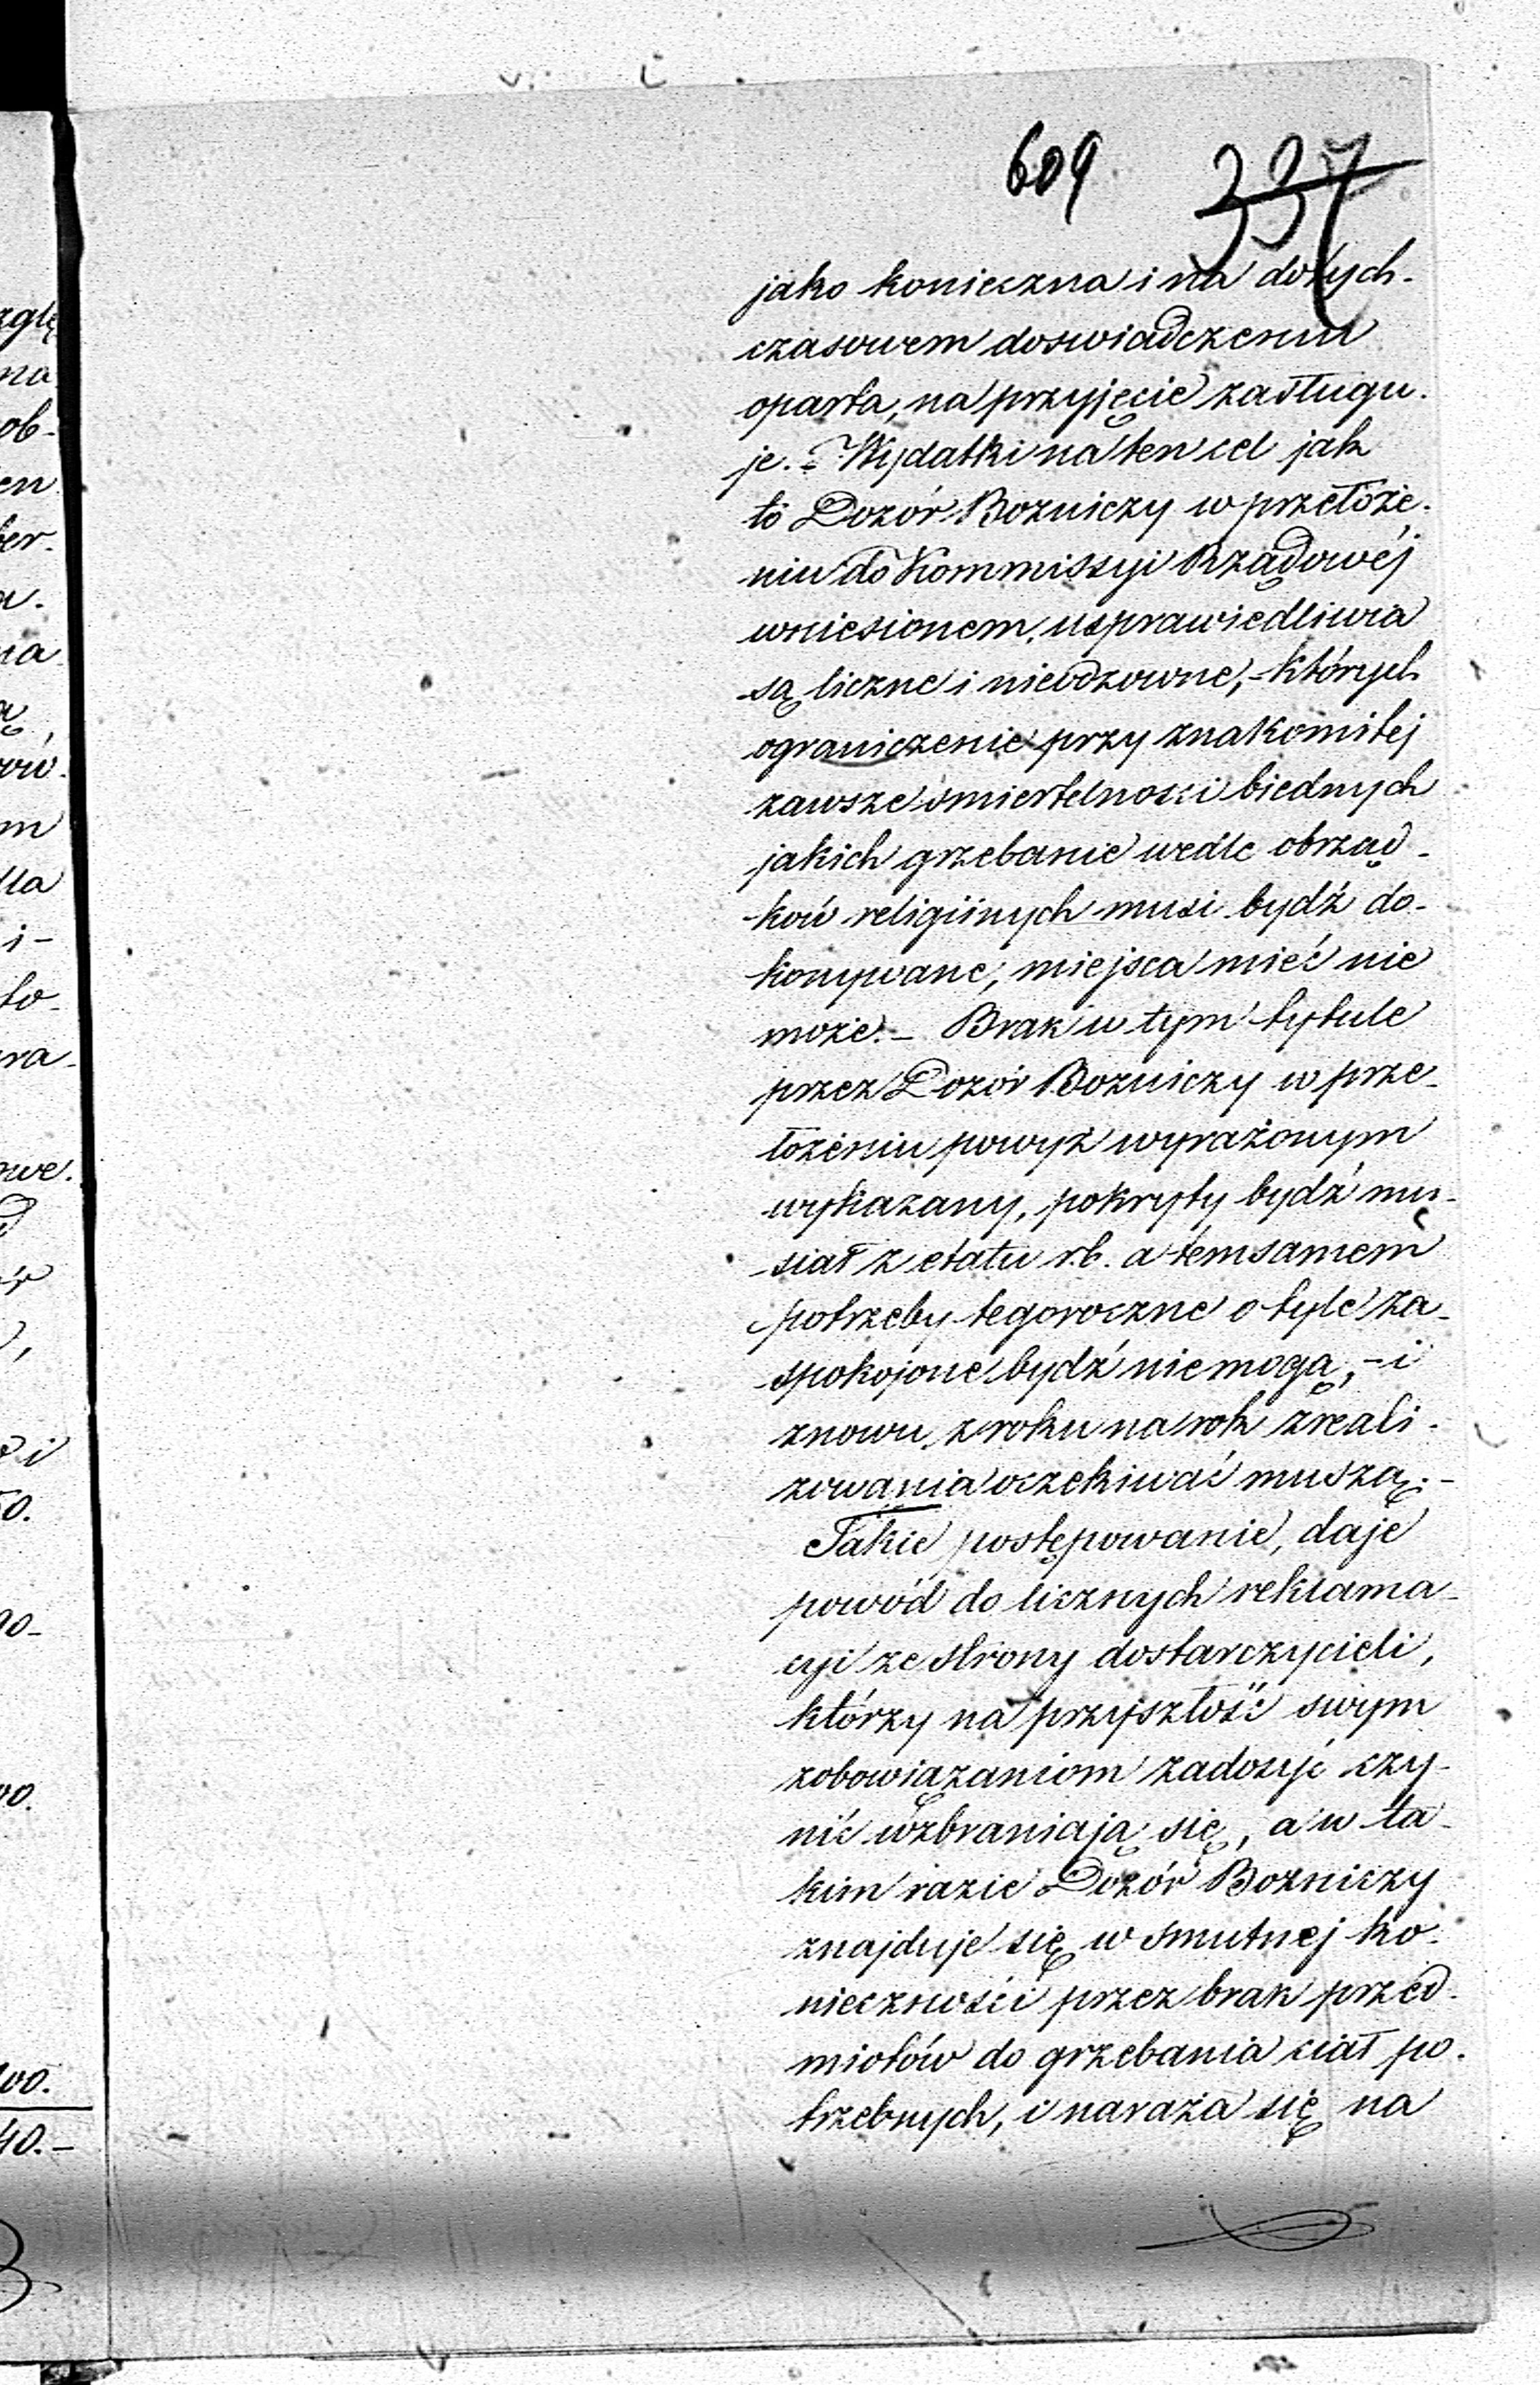 609 337
jako konieczna i na dotych-
czasowem doswiadczeniu
oparta, na przyjęcie zasługu-
je. - Wydatki na ten cel jak
to Dozór Bozniczy w przełoże-
niu do Kommissyi Rządowéj
wniesionem, usprawiedliwia
są liczne i nieodzowne, - których
ograniczenie przy znakomitej
zawsze smiertelnosci biednych
jakich grzebanie wedle obrząd-
ków religiinych musi bydź do-
konywane, miejsca mieć nie
może. - Brak w tym tytule
przez Dozór Bozniczy w prze-
łożeniu powyż wyrażonym
wykazany, pokryty bydź mu-
siał z etatu r.b. a temsamem
potrzeby tegoroczne o tyle za-
spokojone bydź niemogą, - i
znowu z roku na rok zreali-
zowania oczekiwać muszą. -
Takie postępowanie, daje
powód do licznych reklama-
cyi ze strony dostarczycieli,
którzy na przyszłość swym
zobowiązaniom zadosyć czy-
nić wzbraniają się, a w ta-
kim razie Dozór Bozniczy
znajduje się w smutnej ko-
nieczności przez brak przed-
miotów do grzebania ciał po-
trzebnych, i naraża się na